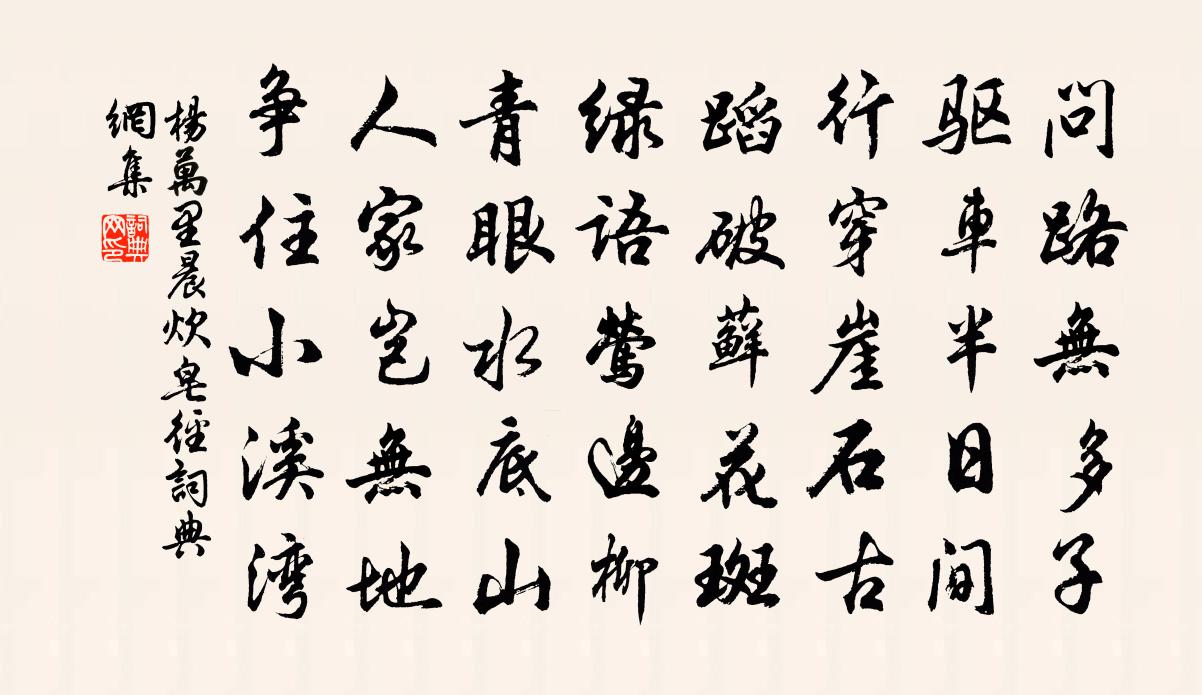 問路無多子
驱車半日间
行穿崖石古
蹈破藓花斑
绿语莺邊柳
青眼水底山
人家岂無地
争住小溪湾
楊萬里晨炊皂徑詞典
網集
詞典
网印